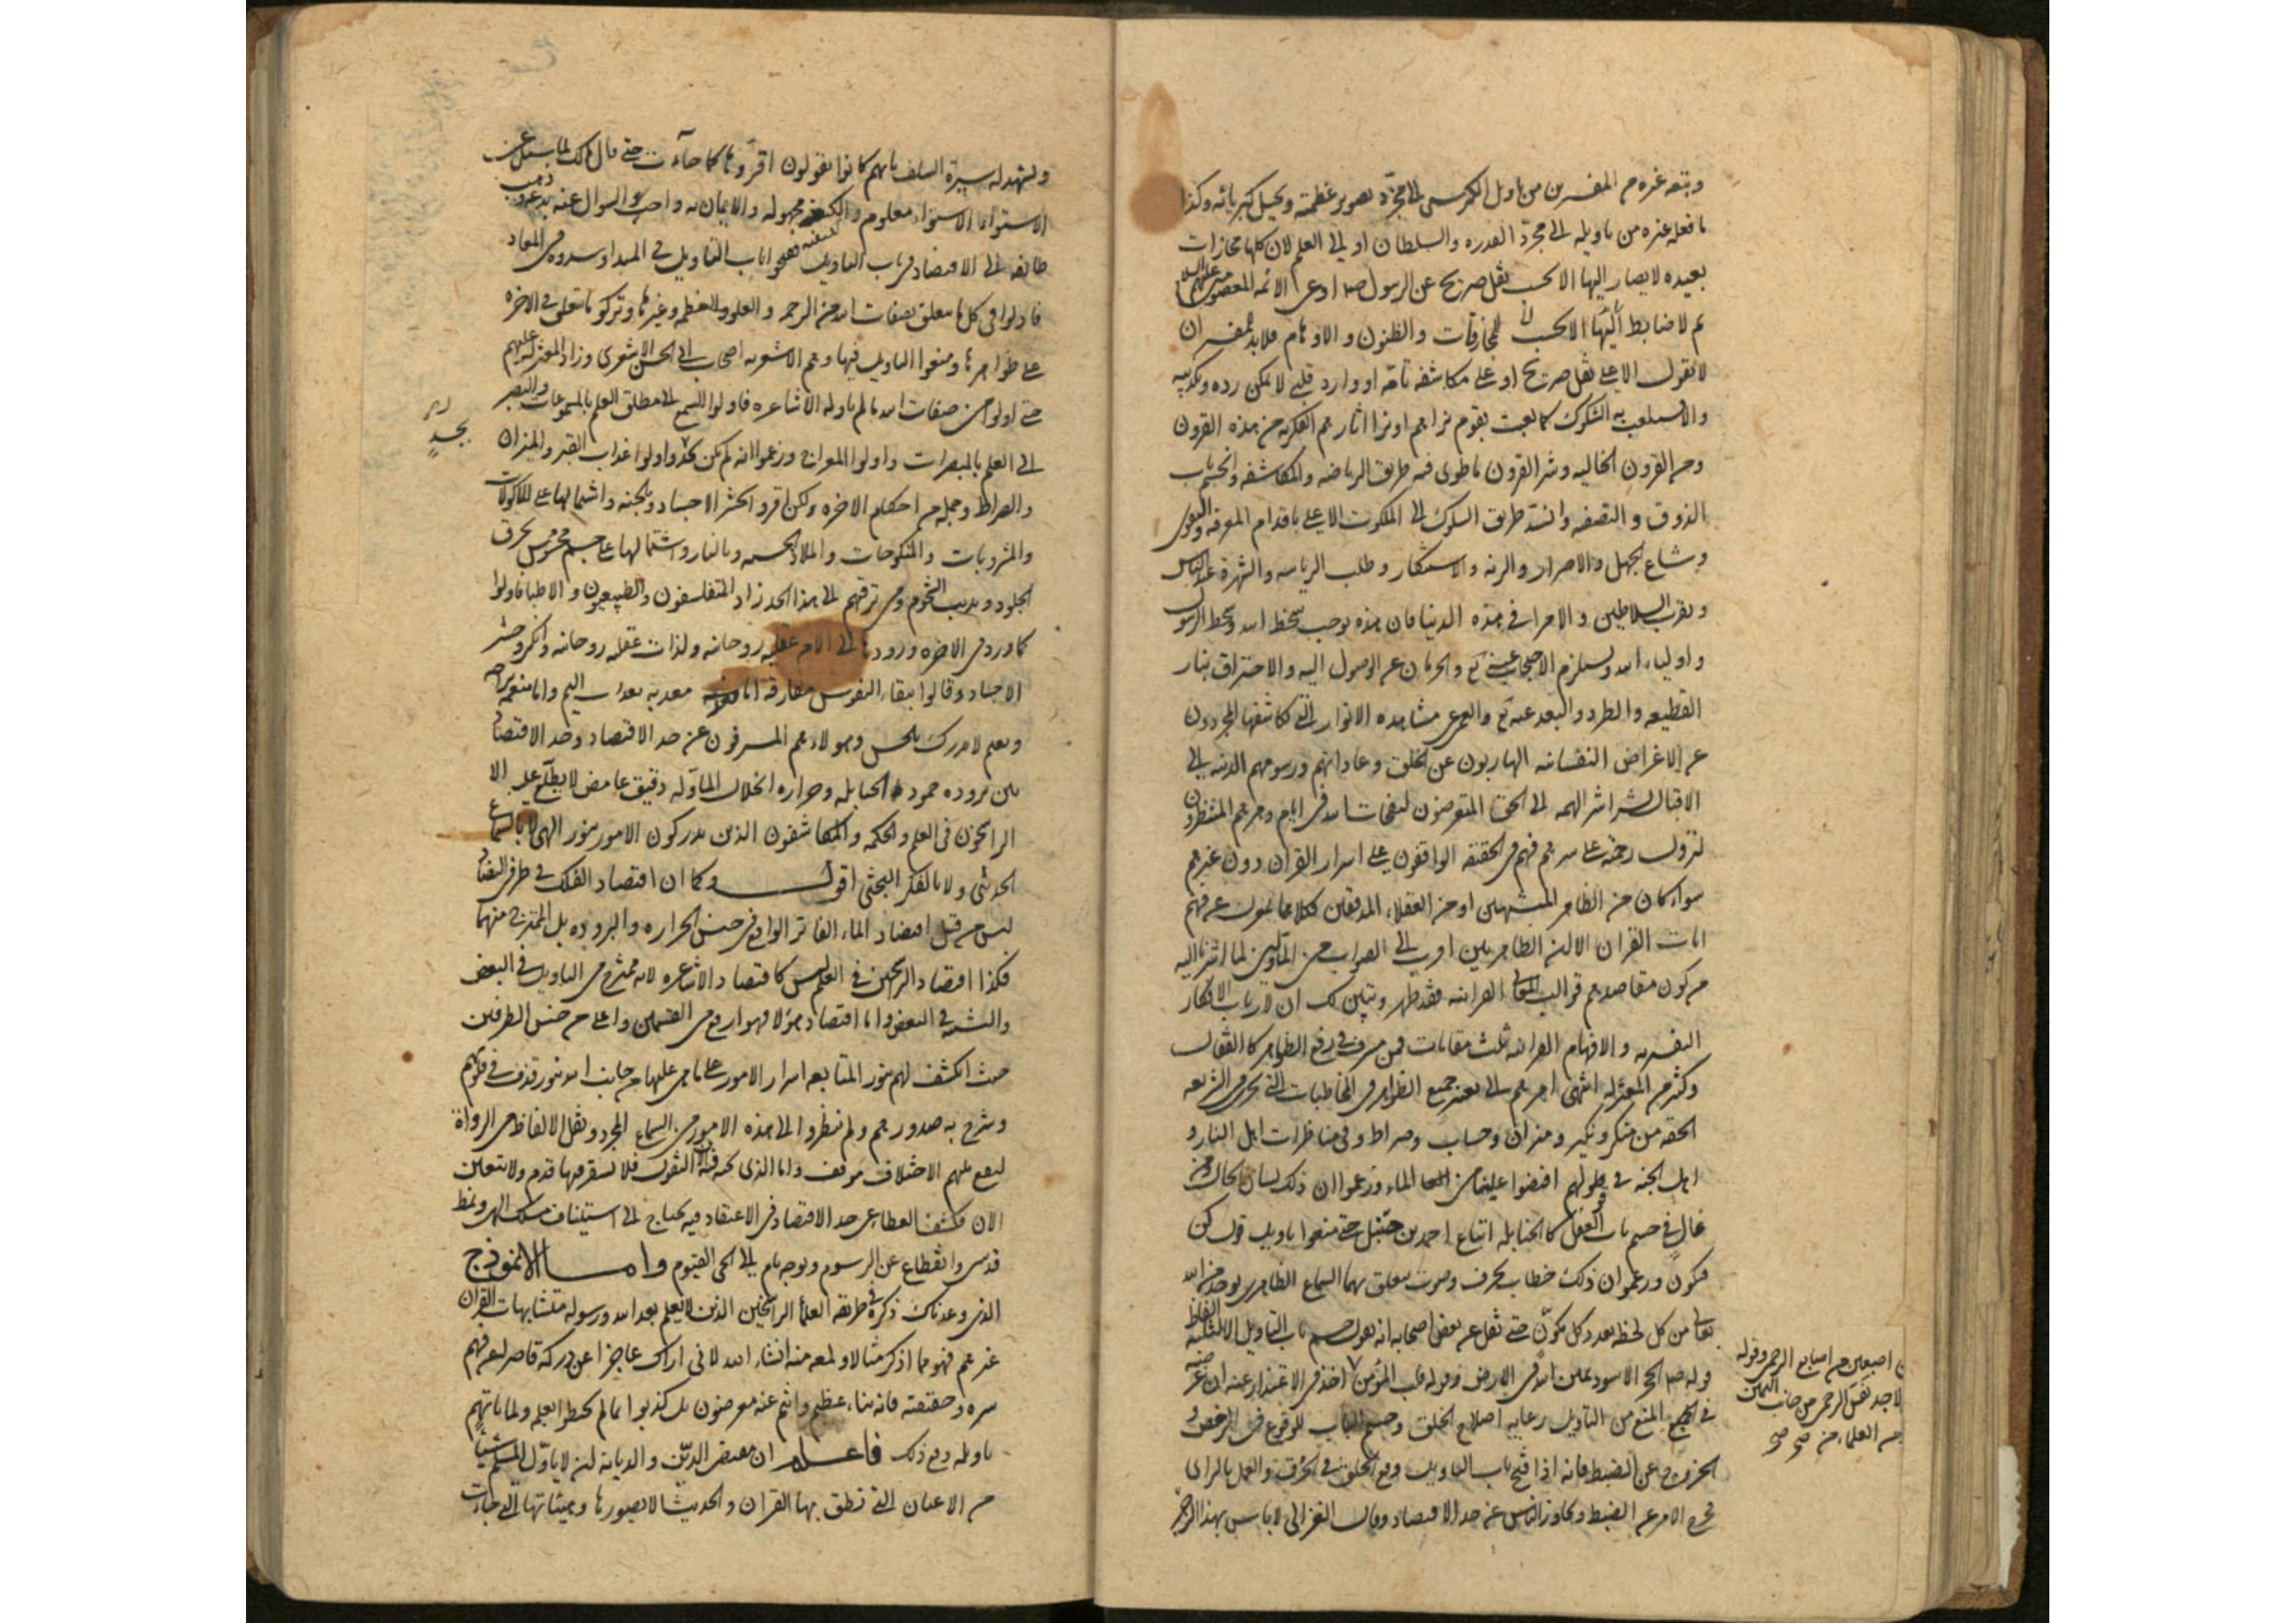 وتبعه غيره من المفسرين من تاويل الكرسى الى مجرّد تصوير عظمته وتخيل كبريائه وكذا
ما فعله غيره من تاويله الى مجرّد القدره والسلطان او الى العلم لان كلها مجازات
بعيده لا يصار اليها الا بحسب نقل صريح عن الرسول ص او عن الائمه المعصومين عليهم السلام
ثم لا ضابط للمجازفات والظنون والاوهام فلابد للمفسر ان
لا يقول الا على نقل صريح او على مكاشفه تامّه او وارد قلبى لا يمكن رده وتكذيبه
والا سيلعب به الشكوك كما لعبت بقوم تراهم او ترا اثارهم الفكريه من هذه القرون
ومن القرون الخاليه وشر القرون ما طوى فيه طريق الرياضه والمكاشفه وانحسم باب
الذوق والتصفيه وانسد طريق السلوك الى الملكوت الاعلى باقدام المعرفه والتقوى
وشاع الجهل والاصرار والرين والاستنكار وطلب الرياسه والشهرة عند الناس
وتقرب السلاطين والامرا فى هذه الدنيا فان هذه يوجب سخط الله وسخط الرسول
واولياء الله ويستلزم الاحتجاب عنه تع والحرمان عن الوصول اليه والاحتراق بنار
القطيعه والطرد والبعد عنه تع والعمى عن مشاهده الانوار التى كاشفها المجردون
عن الاغراض النفسانيه الهاربون عن الخلق وعاداتهم ورسومهم الدنيه الى
الاقبال بشراشر الهمه الى الحق المتعرضون لنفحات الله فى ايام دهرهم المنتظرون
لنزول رحمته على سرهم فهم فى الحقيقه الواقفون على اسرار القران دون غيرهم
سواء كان من الظاهر المشبهين او من العقلاء المدققين فكلاهما بمعزل عن فهم
ايات القران الا ان الظاهريين اقرب الى الصواب من المأولين لما اشرنا اليه
من كون مقاصدهم قوالب المعانى القرانيه فقد ظهر وتبين لك ان لارباب الافكار
التفسيريه والافهام القرانيه ثلث مقامات فمن مسرف فى رفع الظواهر كالقفال
وكثير من المعتزله انتهى امرهم الى تغيير جميع الظواهر فى المخاطبات التى تجرى فى الشريعه
الحقه من منكر ونكير وميزان وحساب وصراط وفى مناظرات اهل النار و
اهل الجنه فى قولهم افيضوا علينا من الماء وزعموا ان ذلك لسان الحال ومن
غالٍ فى حسم باب العقل كالحنابله اتباع احمد بن حنبل حتى منعوا تاويل قول كن
فيكون وزعموا ان ذلك خطاب بحرف وصوت يتعلق بهما السماع الظاهرى يوجد من الله
تعالى من كل لحظه بعدد كل مكوّن حتى نقل عن بعض اصحابه انه يقول حسم باب التاويل الا لثلثه الفاظ
قوله ص الحجر الاسود يمين الله فى الارض وقوله قلب المؤمن اخذ فى الاعتذار عنه ان غرضه
فى المنع من التاويل رعايه اصلاح الخلق وحسم الباب للوقوع فى الرخص و
الخروج عن الضبط فانه اذا فتح باب التاويل وقع الخلق فى الخرق والعمل بالراى
فخرج الامر عن الضبط وتجاوز الناس عن حد الاقتصاد وقال الغزالى لا باس بهذا الزجر
بين اصبعين من اصابع الرحمن وقوله
انى لاجد نفس الرحمن من جانب اليمن
من العلماء من صح صح
ويشهد له سيرة السلف بانهم كانوا يقولون اقرّوها كما جاءت حتى قال مالك لما سئل عن
الاستواء الاستواء معلوم والكيفيه مجهوله والايمان به واجب والسوال عنه بدعه وذهب
طائفه الى الاقتصاد فى باب التاويل ففتحوا باب التاويل فى المبداء وسدوه فى المعاد
فاولوا فى كل ما يتعلق بصفات الله من الرحمه والعلو والعظمه وغيرها وتركوا ما يتعلق فى الاخره
على ظواهرها ومنعوا التاويل فيها وهم الاشعريه اصحاب ابى الحسن الاشعرى وزاد المعتزله عليهم
حتى اولوا من صفات الله ما لم يأوله الاشاعره فاولوا السمع الى مطلق العلم بالمسموعات والبصر
الى العلم بالمبصرات واولوا المعراج وزعموا انه لم يكن بجسد واولوا عذاب القبر والميزان
والصراط وجمله من احكام الاخره ولكن اقروا بحشر الاجساد وبالجنه واشتمالها على الماكولات
والمشروبات والمنكوحات والملاذ الحسيه وبالنار واشتمالها على جسم محسوس يحرق
الجلود ويذيب الشحوم ومن ترقيهم الى هذا الحد زاد المتفلسفون والطبيعيون والاطباء فاولوا
كلما ورد فى الاخره وردوها الى الام عقليه روحانيه ولذات عقليه روحانيه وانكروا حشر
الاجساد وقالوا ببقاء النفوس مفارقه اما معذبه بعذاب اليم واما منعمه براحه
ونعيم لا يدرك بالحس وهولاء هم المسرفون عن حد الاقتصاد وحد الاقتصاد
بين بروده جمود الحنابله وحراره انحلال المأوله دقيق غامض لا يطلع عليه الا
الراسخون فى العلم والحكمه والمكاشفون الذين يدركون الامور بنور الهى لا بالسماع
الحديثى ولا بالفكر البحثى اقول وكما ان اقتصاد الفلك فى طرفى التضاد
ليس من قبيل اقتصاد الماء الفاتر الواقع فى جنس الحراره والبروده بل الممتزج منهما
فكذا اقتصاد الراسخين فى العلم ليس كاقتصاد الاشاعره لانه ممتزج من التاويل فى البعض
والتشبيه فى البعض واما اقتصاد هولاء فهو ارفع من القسمين واعلى من جنس الطرفين
حيث انكشف لهم بنور المتابعه اسرار الامور على ما هى عليها من جانب الله بنور قذف فى قلوبهم
وشرح به صدورهم ولم ينظروا الى هذه الامور من السماع المجرد ونقل الالفاظ من الرواة
ليقع بينهم الاختلاف فلا يستقر فيها قدم ولا يتعين
الان فكشف الغطاء عن حد الاقتصاد فى الاعتقاد فيه يحتاج الى استيناف مسلك الهى ونمط
قدسى وانقطاع عن الرسوم وتوجه تام الى الحى القيوم واما الانموذج
الذى وعدناك ذكره فى طريقه العلماء الراسخين الذين لا يعلم بعد الله ورسوله متشابهات القران
غيرهم فهو مما اذكر مثالا ولمعه منه انشاء الله لانى اراك عاجزا عن دركه قاصرا عن فهم
سره وحقيقته فانه نباء عظيم وانتم عنه معرضون بل كذبوا بما لم يحيطوا بعلمه ولما ياتهم
تاويله ومع ذلك فاعلم ان مقتضى الدين والديانه ان لا يأوّل المسلم شيئا
من الاعيان التى نطق بها القران والحديث الا بصورها وهيئاتها التى جاءت
بجسدٍ